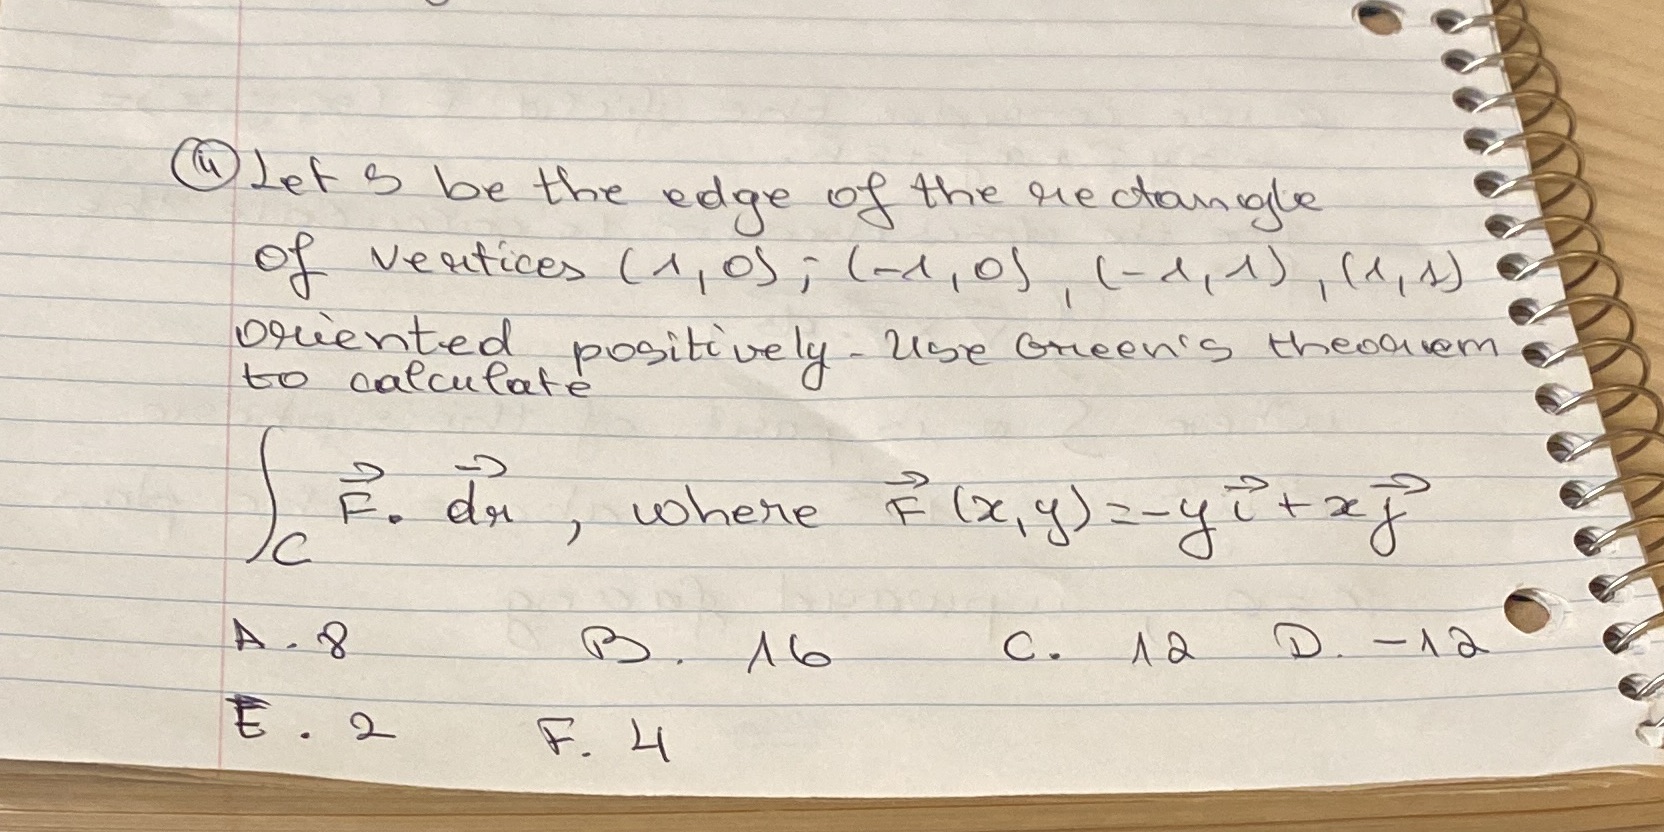 ④ Let S be the edge of the rectangle
of vertices (1,0); (-1,0), (-1,1), (1,1)
oriented positively. Use Green's theorem
to calculate
∫_C F⃗. dr⃗, where F⃗(x,y)=-y i⃗ + x j⃗
A. 8 B. 16 C. 12 D. -12
E. 2 F. 4